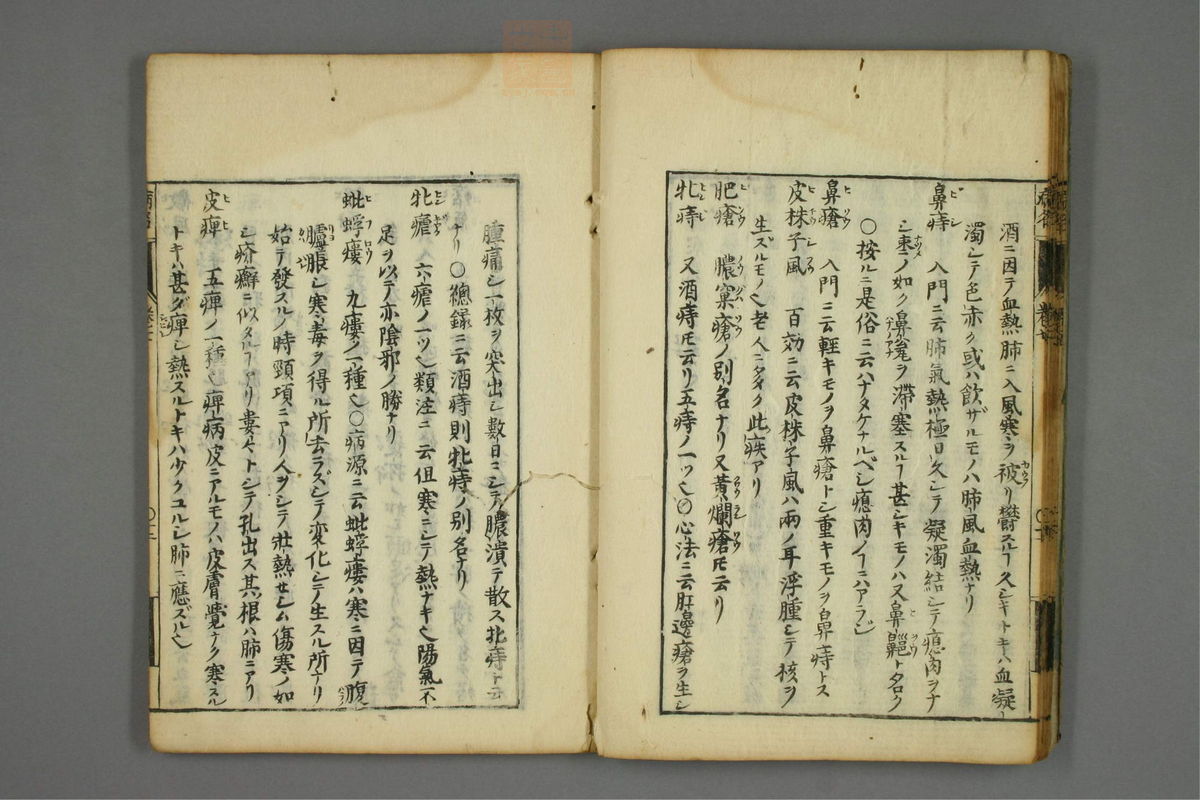 酒ニ因テ血熱肺ニ入風寒ヲ被リ鬱スルヿ久シキトキハ血凝
濁シテ色赤ク或ハ飲ザルモノハ肺風血熱ナリ
鼻痔 入門ニ云肺氣熱極日久シテ凝濁結シテ瘜肉ヲナ
シ棗ノ如ク鼻竁ヲ滞塞スルヿ甚シキモノハ又鼻齆ト名ク
〇按ルニ是俗ニ云ハナタケナルベシ瘜肉ノヿニハアラジ
鼻瘡 入門ニ云輕キモノヲ鼻瘡トシ重キモノヲ鼻痔トス
皮株子風 百効ニ云皮株子風ハ兩ノ耳浮腫シテ核ヲ
生ズルモノ也老人ニ多ク此疾アリ
肥瘡 膿窠瘡ノ別名ナリ又黃爛瘡𪜈云リ
牝痔 又酒痔𪜈云リ五痔ノ一ツ也〇心法ニ云肛邊瘡ヲ生シ
腫痛シ一枚ヲ突出シ數日ニシテ膿潰テ散ス牝痔ト云
ナリ〇總録ニ云酒痔則牝痔ノ別名ナリ
牝瘧 六瘧ノ一ツ也類注ニ云但寒ニシテ熱ナキ也陽氣不
足ヲ以テ亦陰邪ノ勝ナリ
蚍蜉瘻 九瘻ノ一種也〇病源ニ云蚍蜉瘻ハ寒ニ因テ腹
臚脹シ寒毒ヲ得ル所去ラズシテ変化シテ生スル所ナリ
始テ發スルノ時頸項ニアリ人ヲシテ壯熱セシム傷寒ノ如
シ疥癬ニ似タルヿアリ婁々トシテ孔出ス其根ハ肺ニアリ
皮痺 五痺ノ一種也痺病皮ニアルモノハ皮膚覺ナク寒スル
トキハ甚ダ痺シ熱スルトキハ少クユルシ肺ニ應ズル也